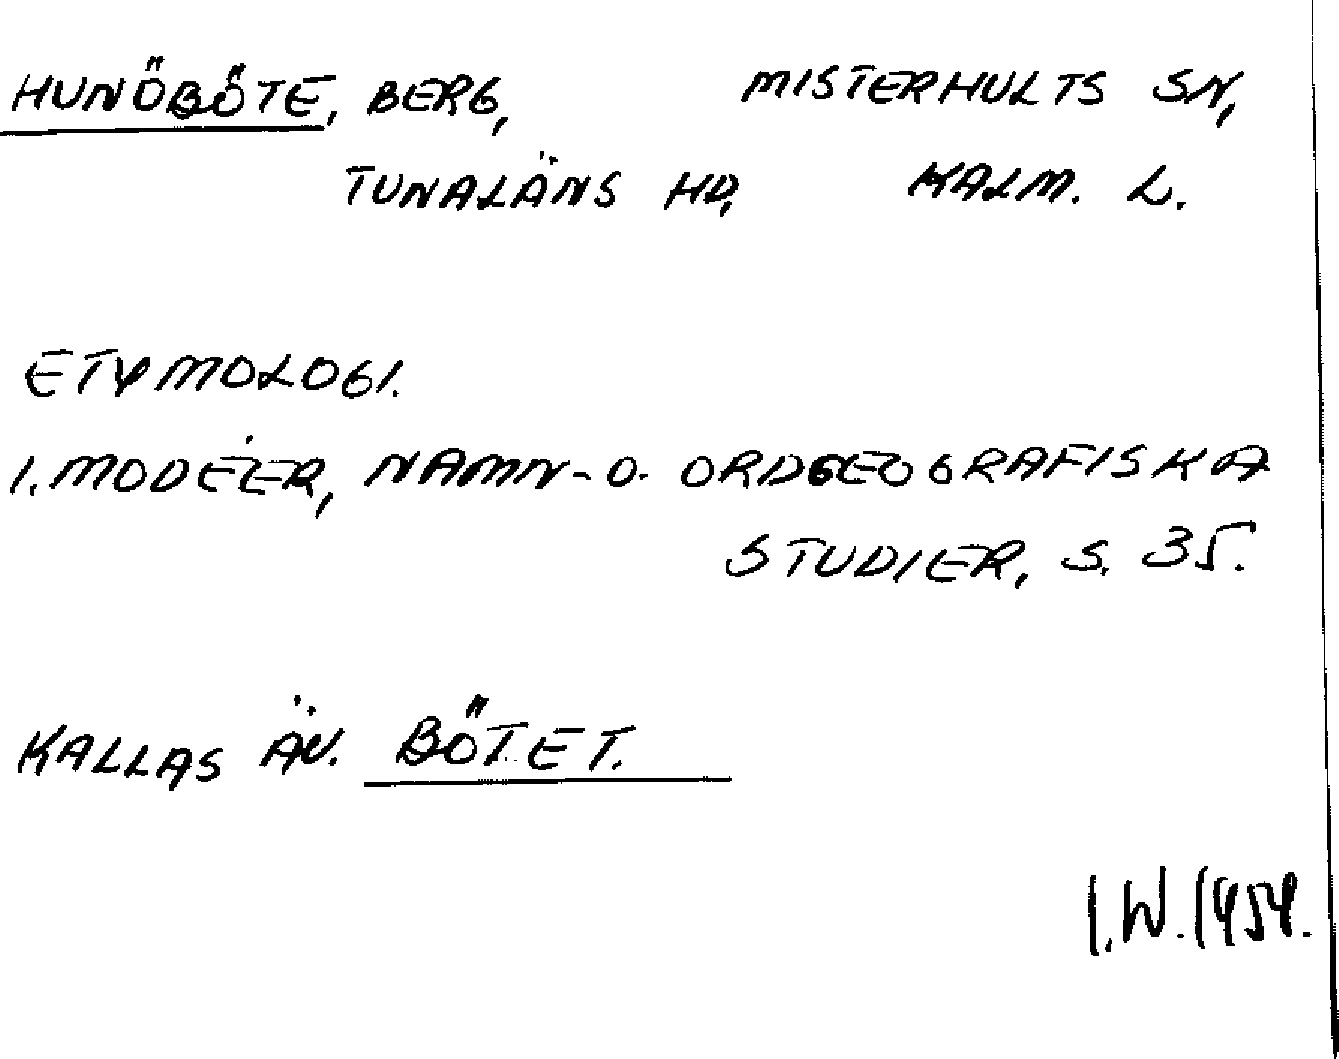 HUNÖBÖTE, BERG, MISTERHULTS SN,
TUNALÄNS HD, KALM. L.
ETYMOLOGI.
I. MODÉER, NAMN- O. ORDGEOGRAFISKA
STUDIER, S. 35.
KALLAS ÄV. BÖTET.
I.W. 1954.